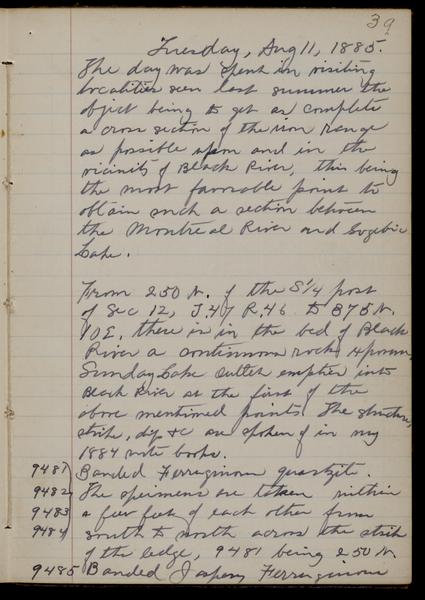 39
Tuesday, Aug 11, 1885.
The day was spent in visiting
localities seen last summer the
object being to get as complete
a cross section of the iron range
as possible upon and in the
vicinity of Black River, this being
the most favorable point to
obtain such a section between
the Montreal River and Gogebic
Lake.
From 250 N. of the S 1/4 post
of Sec 12, T.47 R.46 to 875 N.
10 E. there is in the bed of Black
River a continuous rock exposure
Sunday Lake outlet empties into
Black River at the first of the
above mentioned points. The structure,
strike, dip &c are spoken of in my
1884 note books.
9481 Banded Ferruginous quartzite.
9482 The specimens are taken within
9483 a few feet of each other from
9484 south to north across the strike
of the ledge, 9481 being 250 N.
9485 Banded Jaspery Ferruginous